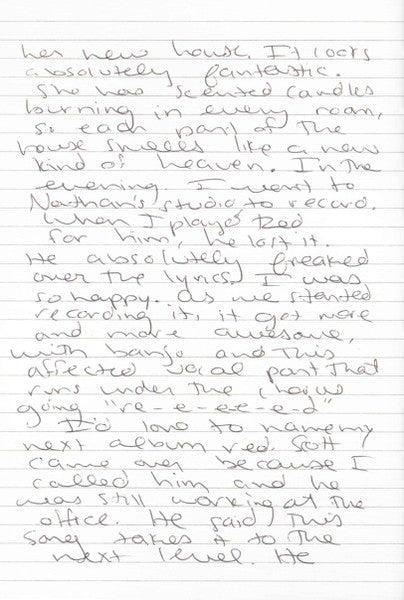 her new house. It looks
absolutely fantastic.
She has scented candles
burning in every room,
so each part of the
house smells like a new
kind of heaven. In the
evening, I went to
Nathan's studio to record.
When I played Red
for him, he lost it.
He absolutely freaked
over the lyrics. I was
so happy. As we started
recording it, it got more
and more awesome,
with banjo and this
affected vocal part that
runs under the chorus
going "re-e-e-e-e-d"
I'd love to name my
next album red. Scott
came over because I
called him and he
was still working at the
office. He said this
song takes it to the
next level. He